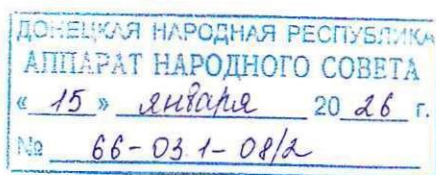 ДОНЕЦКАЯ НАРОДНАЯ РЕСПУБЛИКА
АППАРАТ НАРОДНОГО СОВЕТА
« 15 » января 20 26 г.
№ 66-03.1-08/2